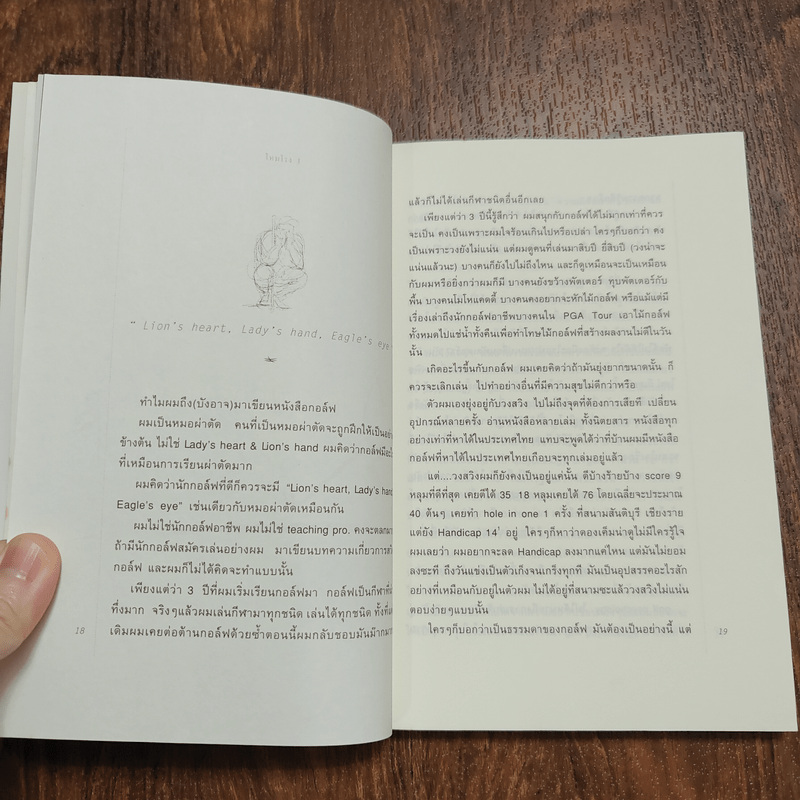 " Lion's heart, Lady's hand, Eagle's eye
ทำไมผมถึง(บังอาจ)มาเขียนหนังสือกอล์ฟ
ผมเป็นหมอผ่าตัด คนที่เป็นหมอผ่าตัดจะถูกฝึกให้เป็น
ข้างต้น ไม่ใช่ Lady's heart & Lion's hand ผมคิดว่ากอล์ฟ
ที่เหมือนการเรียนผ่าตัดมาก
ผมคิดว่านักกอล์ฟที่ดีก็ควรจะมี "Lion's heart, Lady's hand
Eagle's eye" เช่นเดียวกับหมอผ่าตัดเหมือนกัน
ผมไม่ใช่นักกอล์ฟอาชีพ ผมไม่ใช่ teaching pro. คงจะตลก
ถ้ามีนักกอล์ฟสมัครเล่นอย่างผม มาเขียนบทความเกี่ยวการ
กอล์ฟ และผมก็ไม่ได้คิดจะทำแบบนั้น
เพียงแต่ว่า 3 ปีที่ผมเริ่มเรียนกอล์ฟมา กอล์ฟเป็นกีฬาที่
ทึ่งมาก จริงๆแล้วผมเล่นกีฬามาทุกชนิด เล่นได้ทุกชนิด ทั้งที่
เดิมผมเคยต่อต้านกอล์ฟด้วยซ้ำตอนนี้ผมกลับชอบมันม๊าก
18
แล้วก็ไม่ได้เล่นกีฬาชนิดอื่นอีกเลย
เพียงแต่ว่า 3 ปีนี้รู้สึกว่า ผมสนุกกับกอล์ฟได้ไม่มากเท่าที่ควร
จะเป็น คงเป็นเพราะผมใจร้อนเกินไปหรือเปล่า ใครๆก็บอกว่า คง
เป็นเพราะวงยังไม่แน่น แต่ผมดูคนที่เล่นมาสิบปี ยี่สิบปี (วงน่าจะ
แน่นแล้วนะ) บางคนก็ยังไปไม่ถึงไหน และก็ดูเหมือนจะเป็นเหมือน
กับผมหรือยิ่งกว่าผมก็มี บางคนยังขว้างพัตเตอร์ ทุบพัตเตอร์กับ
พื้น บางคนโมโหแคดดี้ บางคนคงอยากจะหักไม้กอล์ฟ หรือแม้แต่มี
เรื่องเล่าถึงนักกอล์ฟอาชีพบางคนใน PGA Tour เอาไม้กอล์ฟ
ทั้งหมดไปแช่น้ำทั้งคืนเพื่อทำโทษไม้กอล์ฟที่สร้างผลงานไม่ดีในวัน
นั้น
เกิดอะไรขึ้นกับกอล์ฟ ผมเคยคิดว่าถ้ามันยุ่งยากขนาดนั้น ก็
ควรจะเลิกเล่น ไปทำอย่างอื่นที่มีความสุขไม่ดีกว่าหรือ
ตัวผมเองยุ่งอยู่กับวงสวิง ไปไม่ถึงจุดที่ต้องการเสียที เปลี่ยน
อุปกรณ์หลายครั้ง อ่านหนังสือหลายเล่ม ทั้งนิตยสาร หนังสือทุก
อย่างเท่าที่หาได้ในประเทศไทย แทบจะพูดได้ว่าที่บ้านผมมีหนังสือ
กอล์ฟที่หาได้ในประเทศไทยเกือบจะทุกเล่มอยู่แล้ว
แต่....วงสวิงผมก็ยังคงเป็นอยู่แค่นั้น ดีบ้างร้ายบ้าง score 9
หลุมที่ดีที่สุด เคยตีได้ 35 18 หลุมเคยได้ 76 โดยเฉลี่ยจะประมาณ
40 ต้นๆ เคยทำ hole in one 1 ครั้ง ที่สนามสันติบุรี เชียงราย
แต่ยัง Handicap 14 อยู่ ใครๆก็หาว่าดองเค็มน่าดูไม่มีใครรู้ใจ
ผมเลยว่า ผมอยากจะลด Handicap ลงมากแค่ไหน แต่มันไม่ยอม
ลงซะที ถึงวันแข่งเป็นตัวเก็งจนเกร็งทุกที มันเป็นอุปสรรคอะไรสัก
อย่างที่เหมือนกับอยู่ในตัวผม ไม่ได้อยู่ที่สนามซะแล้ววงสวิงไม่แน่น
ตอบง่ายๆแบบนั้น
ใครๆก็บอกว่าเป็นธรรมดาของกอล์ฟ มันต้องเป็นอย่างนี้ แต่
19